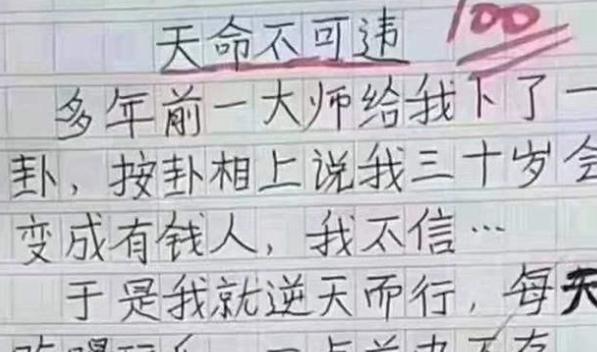 天命不可违 100
多年前一大师给我下了一
卦，按卦相上说我三十岁会
变成有钱人，我不信…
于是我就逆天而行，每天